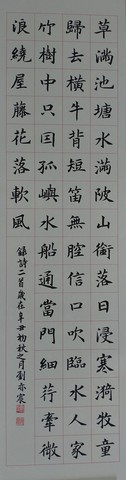 草滿池塘水滿陂山銜落日浸寒漪牧童
歸去橫牛背短笛無腔信口吹臨水人家
竹樹中只因孤嶼水船通當門細荇牽微
浪繞屋藤花落軟風
錄詩二首歲在辛丑初秋之月劉亦宸